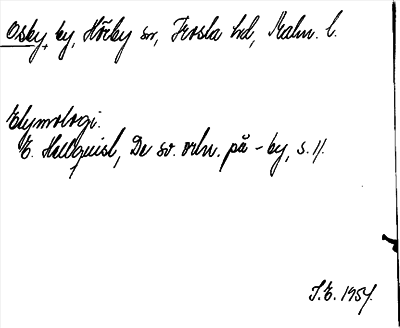 Osby, by, Hörby sn, Frosta hd, Malm. l.
Etymologi.
E. Hellquist, De sv. ortn. på -by, s. 11.
J.E. 1957.